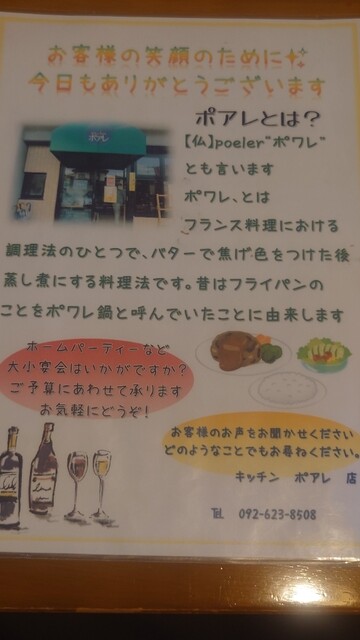 お客様の笑顔のために
今日もありがとうございます
ポアレとは？
【仏】poeler"ポワレ"
とも言います
ポワレ、とは
フランス料理における
調理法のひとつで、バターで焦げ色をつけた後
蒸し煮にする料理法です。昔はフライパンの
ことをポワレ鍋と呼んでいたことに由来します
ホームパーティーなど
大小宴会はいかがですか？
ご予算にあわせて承ります
お気軽にどうぞ！
お客様のお声をお聞かせください
どのようなことでもお尋ねください。
キッチン ポアレ 店
℡ 092-623-8508
ポアレ